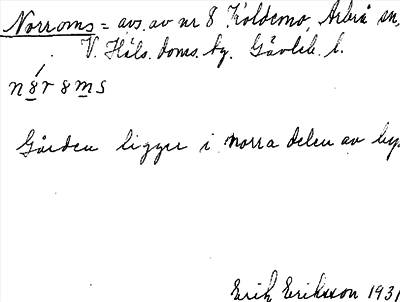 Norroms = avs. av nr 8 Koldemo, Arbrå sn,
V. Häls. doms. hg. Gävleb. l.
n8́r8ms
Gården ligger i norra delen av by
Erik Eriksson 1931